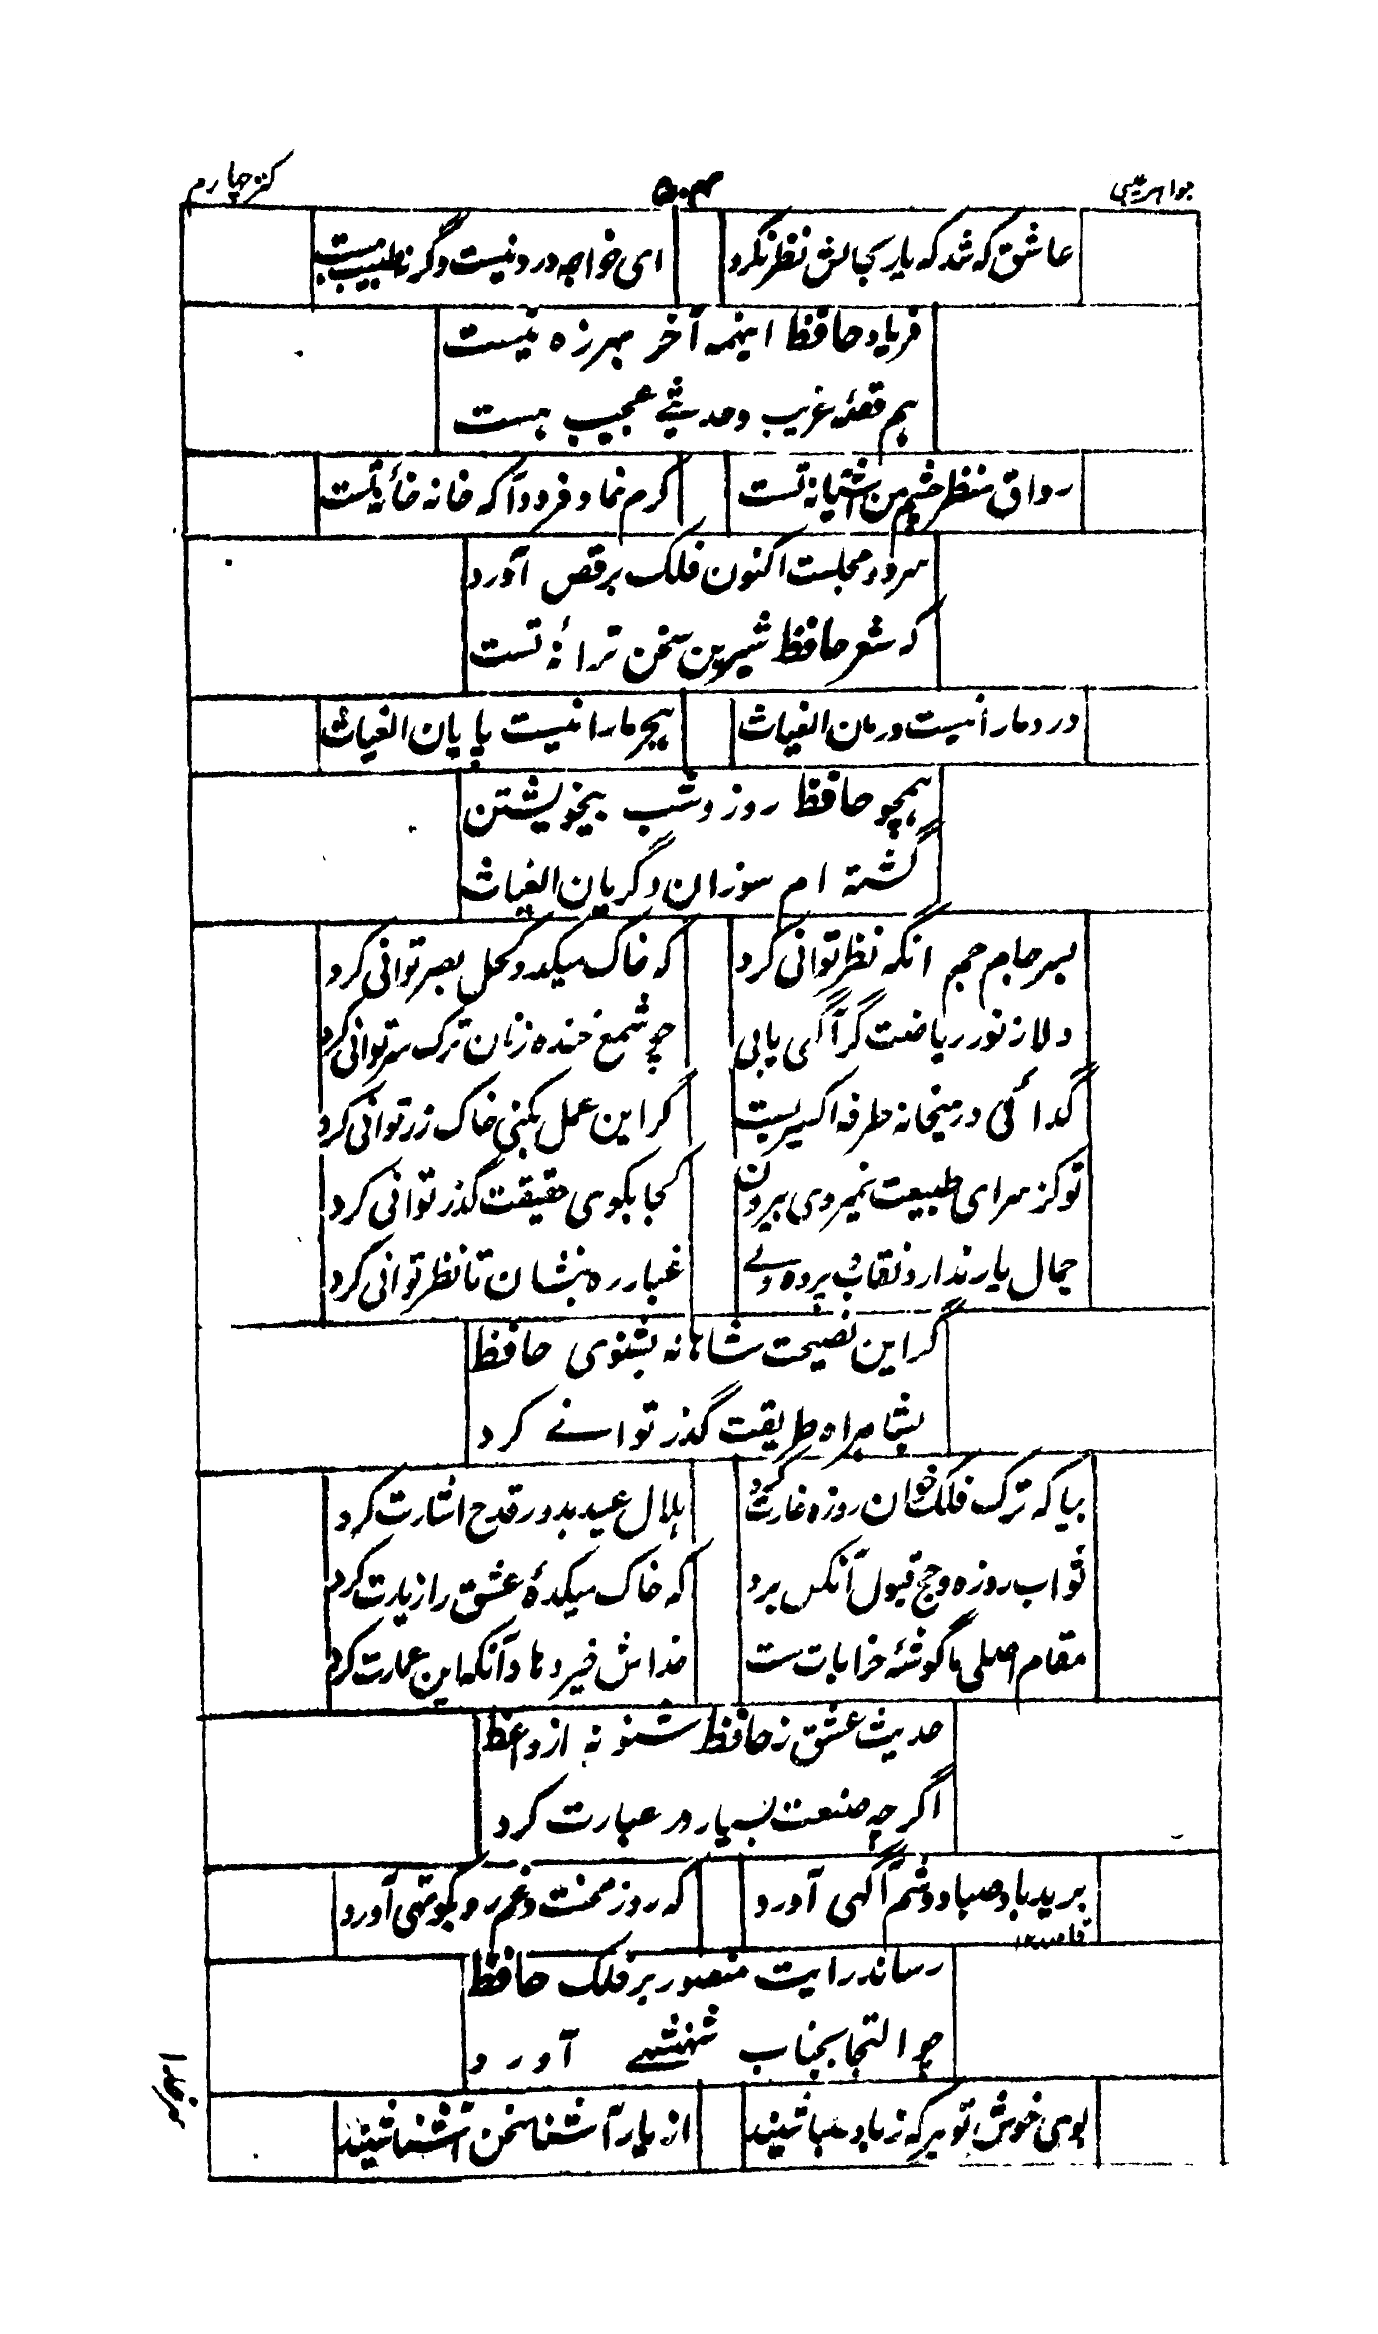 جواهر غیبی
۵۰۴
کنز چهارم
عاشق که شد که یار بحالش نظر نکرد
ای خواجه درد نیست وگرنه طبیب هست
فریاد حافظ اینهمه آخر بهرزه نیست
هم قصهٔ غریب و حدیثے عجیب هست
رواق منظر چشم من آشیانهٔ تست
کرم نما و فرود آ که خانه خانهٔ تست
سرود مجلست اکنون فلک برقص آورد
که شعر حافظ شیرین سخن ترانهٔ تست
درد ما را نیست درمان الغیاث
هجر ما را نیست پایان الغیاث
همچو حافظ روز و شب بیخویشتن
گشته ام سوزان و گریان الغیاث
بسر جام جم آنگه نظر توانی کرد
که خاک میکده کحل بصر توانی کرد
دلا ز نور ریاضت گر آگهی یابی
چو شمع خنده زنان ترک سر توانی کرد
گدائی در میخانه طرفه اکسیریست
گر این عمل بکنی خاک زر توانی کرد
تو کز سرای طبیعت نمیروی بیرون
کجا بکوی حقیقت گذر توانی کرد
جمال یار ندارد نقاب و پرده ولے
غبار ره بنشان تا نظر توانی کرد
گر این نصیحت شاهانه بشنوی حافظ
بشاهراه طریقت گذر توانے کرد
بیا که ترک فلک خوان روزه غارت کرد
هلال عید بدور قدح اشارت کرد
ثواب روزه و حج قبول آنکس برد
که خاک میکدهٔ عشق را زیارت کرد
مقام اصلی ما گوشهٔ خرابات ست
خداش خیر دهاد آنکه این عمارت کرد
حدیث عشق ز حافظ شنو نه از واعظ
اگرچه صنعت بسیار در عبارت کرد
برید باد صبا دوشم آگهی آورد
که روز محنت و غم رو بکوتهی آورد
قاصد ۱۲
رساند رایت منصور بر فلک حافظ
چو التجا بجناب شهنشهے آورد
بوی خوش تو هر که ز باد صبا شنید
از یار آشنا سخن آشنا شنید